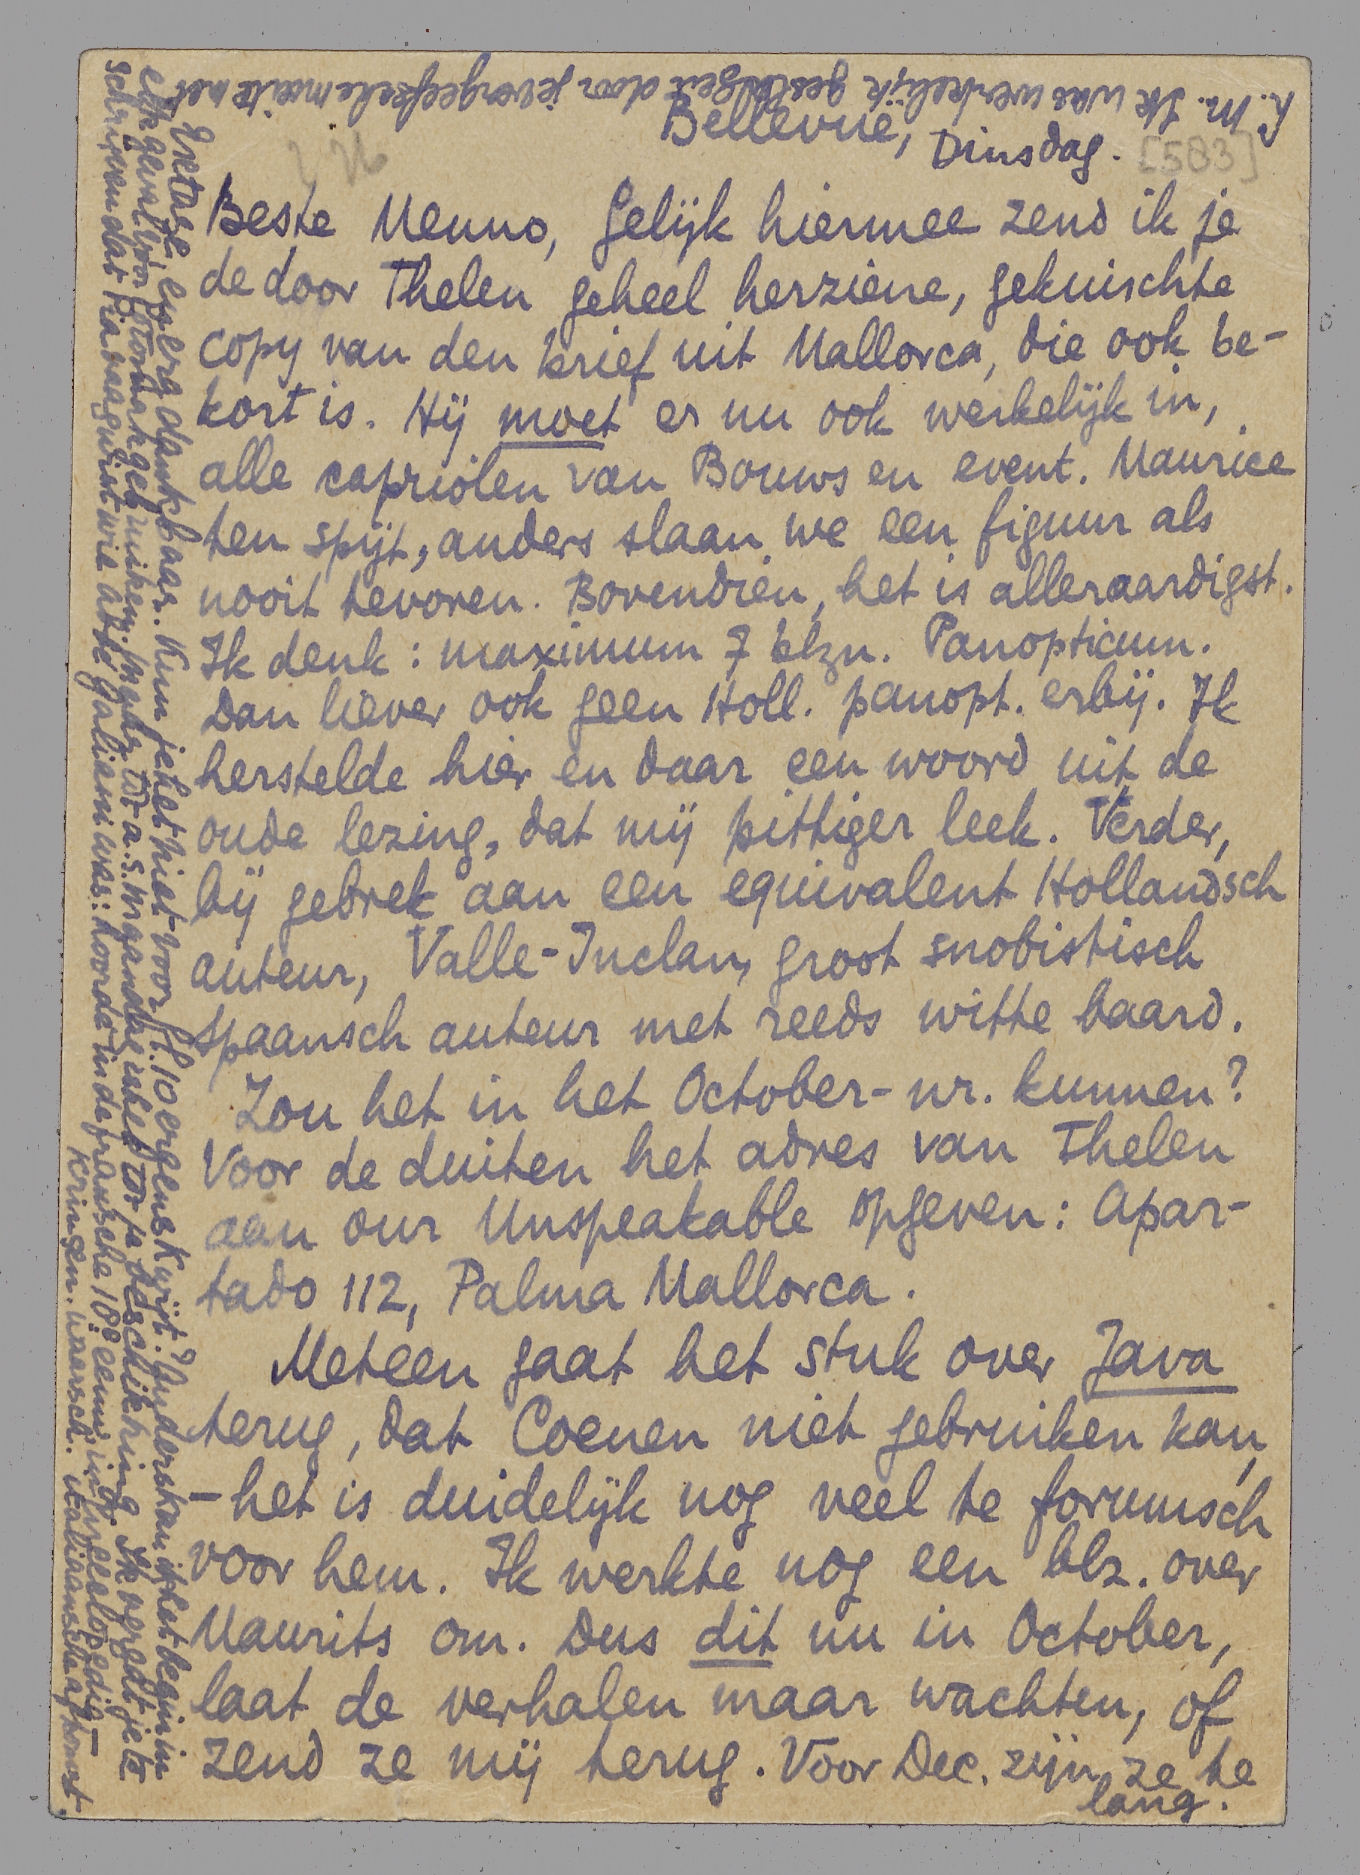 Bellevue,
Dinsdag. [583]
Beste Menno, Gelijk hiermee zend ik je
de door Thelen geheel herziene, gekuischte
copy van den brief uit Mallorca, die ook be-
kort is. Hij moet er nu ook werkelijk in,
alle capriolen van Bouws en event. Maurice
ten spijt, anders slaan we een figuur als
nooit tevoren. Bovendien, het is alleraardigst.
Ik denk: maximum 7 blzn. Panopticum.
Dan liever ook geen Holl. panopt. erbij. Ik
herstelde hier en daar een woord uit de
oude lezing, dat mij pittiger leek. Verder,
bij gebrek aan een equivalent Hollandsch
auteur, Valle-Inclan, groot snobistisch
Spaansch auteur met reeds witte baard.
Zou het in het October-nr. kunnen?
Voor de duiten het adres van Thelen
aan our Unspeakable opgeven: Apar-
tado 112, Palma Mallorca.
Meteen gaat het stuk over Java
terug, dat Coenen niet gebruiken kan,
- het is duidelijk nog veel te forumsch
voor hem. Ik werkte nog een blz. over
Maurits om. Dus dit nu in October,
laat de verhalen maar wachten, of
zend ze mij terug. Voor Dec. zijn ze te
lang.
Ik was werkelijk door je vergeefsche moeite met
Gretage en erg dankbaar. Kun je het niet voor f.10 ergens kwijt? Anders kan ik het begin in
elk geval voor gebruiken.
schrijven dat Pia vraagt wie abbé Galiani was: hoorde in de fransche 18e eeuw in Encyclopedie-
kringen. waarsch. italiaansche afkomst.